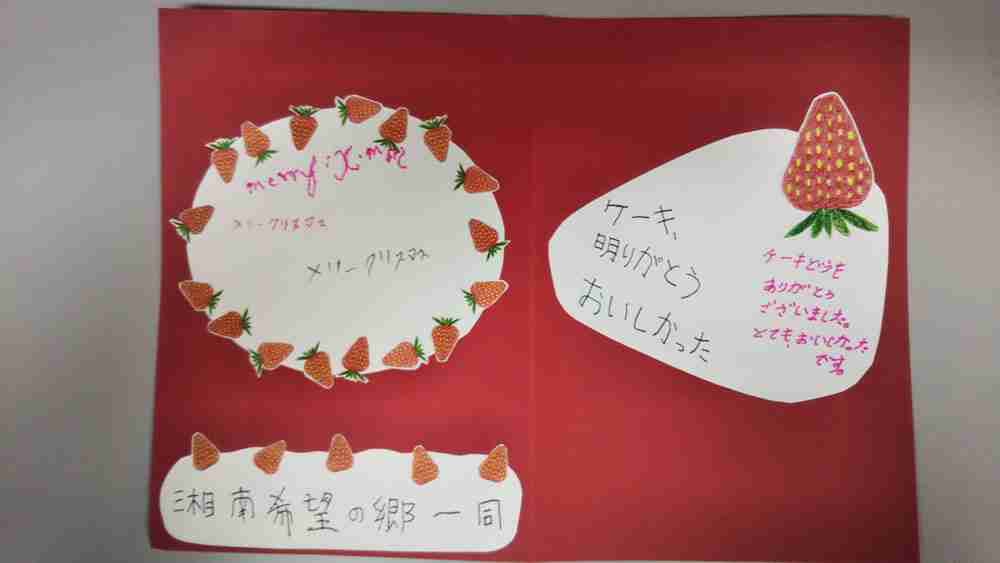 merry X·mas
メリークリスマス
メリークリスマス
湘南希望の郷一同
ケーキ、
明りがとう
おいしかった
ケーキどうも
ありがとう
ございました。
とてもおいしかった
です。